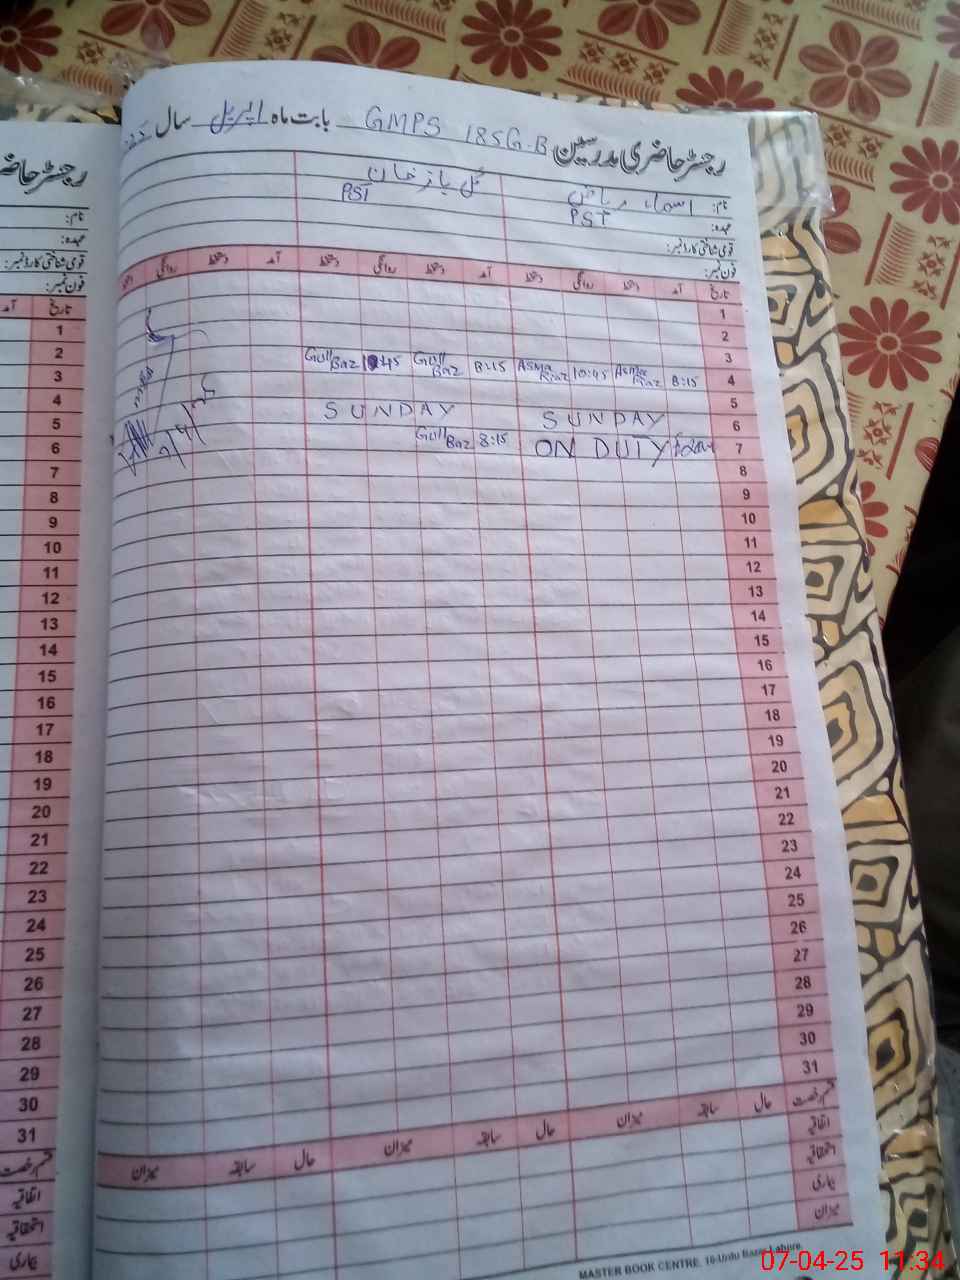 رجسٹر حاضری مدرسین GMPS 185G-B بابت ماہ اپریل سال
نام: اسماء ریاض گل باز خان
عہدہ: PST PST
قومی شناختی کارڈ نمبر:
فون نمبر:
تاریخ آمد دستخط روانگی دستخط آمد دستخط روانگی دستخط آمد دستخط روانگی
1
2
3
4 8:15 Asma Riaz 10:45 Asma Riaz 8:15 Gull Baz 10:45 Gull Baz
5
6 SUNDAY SUNDAY
7 ON DUTY 8:15 Gull Baz
8
9
10
11
12
13
14
15
16
17
18
19
20
21
22
23
24
25
26
27
28
29
30
31
قسم رخصت حال سابقہ میزان حال سابقہ میزان حال سابقہ میزان
اتفاقیہ
استحقاقیہ
بیماری
میزان
MASTER BOOK CENTRE, 16-Urdu Bazar Lahore.
رجسٹر حاضر
نام:
عہدہ:
قومی شناختی کارڈ نمبر:
فون نمبر:
تاریخ آمد
1
2
3
4
5
6
7
8
9
10
11
12
13
14
15
16
17
18
19
20
21
22
23
24
25
26
27
28
29
30
31
قسم رخصت
اتفاقیہ
استحقاقیہ
بیماری
07-04-25 11:34